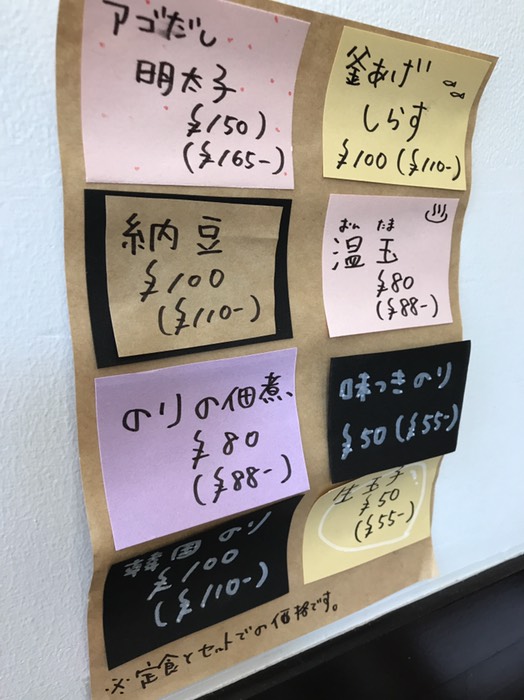 アゴだし
明太子
¥150)
(¥165-)
釜あげ
しらす
¥100 (¥110-)
納豆
¥100
(¥110-)
おん たま
温玉
¥80
(¥88-)
のりの佃煮、
¥80
(¥88-)
味つきのり
¥50 (¥55-)
韓国のり
¥100
(¥110-)
生玉子
¥50
(¥55-)
※定食とセットでの価格です。